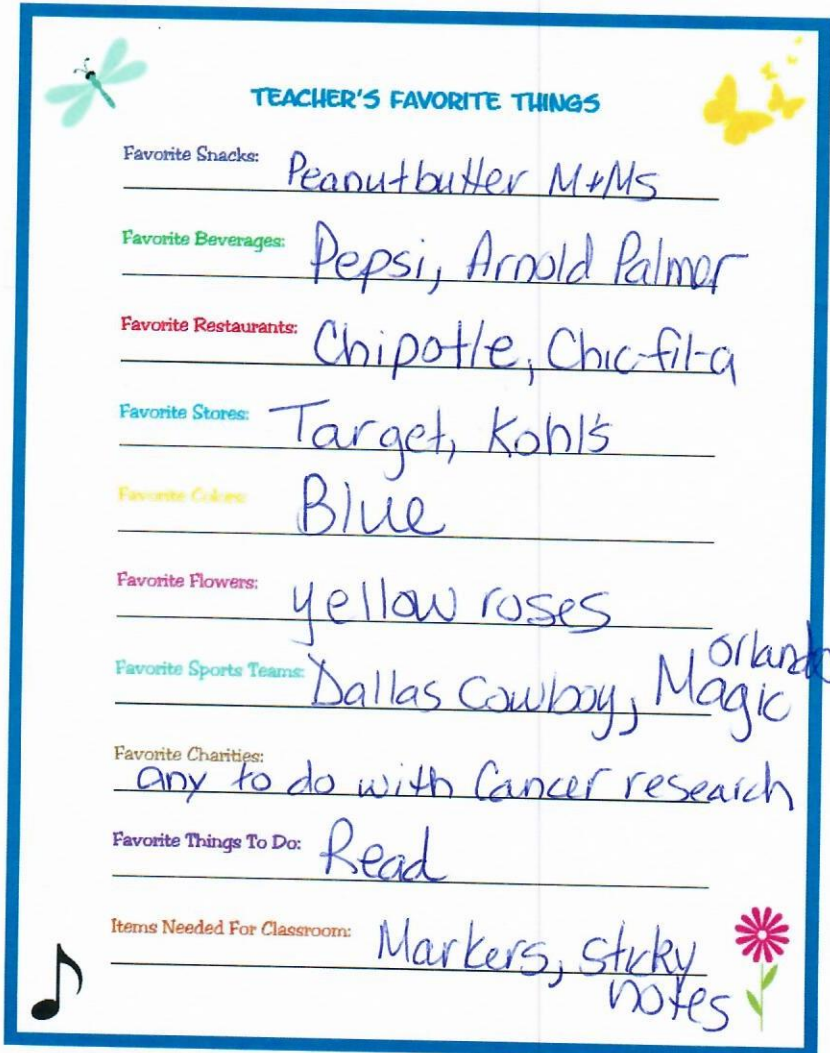 TEACHER'S FAVORITE THINGS
Favorite Snacks: Peanutbutter M+Ms
Favorite Beverages: Pepsi, Arnold Palmor
Favorite Restaurants: Chipotle, Chic-fil-a
Favorite Stores: Target, Kohl's
Favorite Colors: Blue
Favorite Flowers: yellow roses
Favorite Sports Teams: Dallas Cowboy, Orlando
Magic
Favorite Charities:
any to do with Cancer research
Favorite Things To Do: Read
Items Needed For Classroom: Markers, sticky
notes